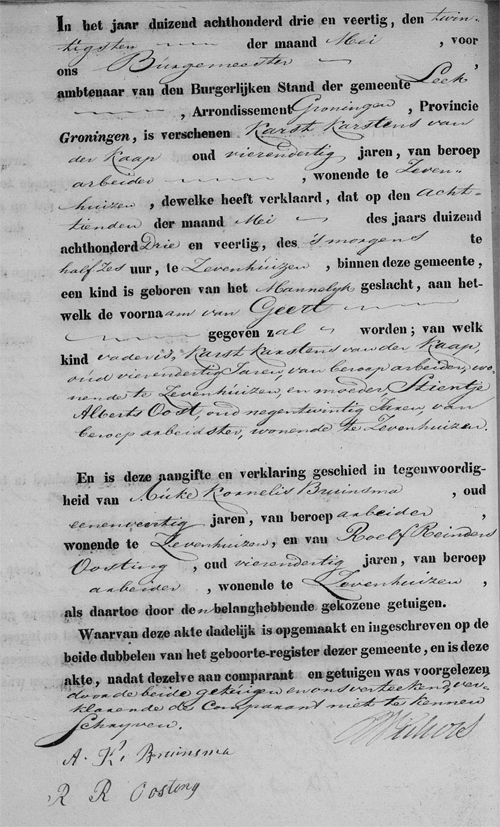 In het jaar duizend achthonderd drie en veertig, den twin-
tigsten der maand Mei , voor
ons Burgemeester ,
ambtenaar van den Burgerlijken Stand der gemeente Leek
, Arrondissement Groningen , Provincie
Groningen, is verschenen Karst Karstens van
der Kaap oud vierendertig jaren, van beroep
arbeider , wonende te Zeven-
huizen , dewelke heeft verklaard, dat op den acht-
tienden der maand Mei des jaars duizend
achthonderd Drie en veertig, des 's morgens te
half zes uur, te Zevenhuizen , binnen deze gemeente,
een kind is geboren van het Mannelyk geslacht, aan het-
welk de voornaam van Geert
gegeven zal worden; van welk
kind vader is, Karst Karstens van der Kaap,
oud vierendertig Jaren, van beroep arbeider, wo-
nende te Zevenhuizen, en moeder Stientje
Alberts Oost, oud negentwintig Jaren van
beroep arbeidster, wonende te Zevenhuizen.
En is deze aangifte en verklaring geschied in tegenwoordig-
heid van Kornelis Bruinsma , oud
eenenveertig jaren, van beroep arbeider ,
wonende te Zevenhuizen , en van Roelf Reinders
Oosting , oud vierendertig jaren, van beroep
arbeider , wonende te Zevenhuizen ,
als daartoe door den belanghebbende gekozene getuigen.
Waarvan deze akte dadelijk is opgemaakt en ingeschreven op de
beide dubbelen van het geboorte-register dezer gemeente, en is deze
akte, nadat dezelve aan comparant en getuigen was voorgelezen,
door de beide getuigen en ons verteekend, ver-
klarende de Comparant niet te kennen
Schryven.
A. K. Bruinsma
R R Oosting